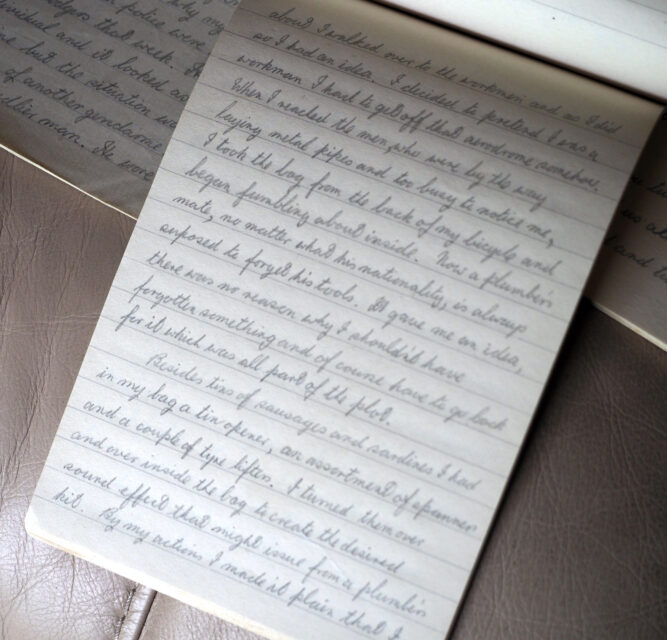 about I walked over to the workmen and as I did
so I had an idea. I decided to pretend I was a
workman. I had to get off that aerodrome somehow.
When I reached the men, who were by the way
laying metal pipes and too busy to notice me,
I took the bag from the back of my bicycle and
began fumbling about inside. Now a plumber's
mate, no matter what his nationality, is always
supposed to forget his tools. It gave me an idea,
there was no reason why I shouldn't have
forgotten something and of course have to go back
for it which was all part of the plot.
Besides tins of sausages and sardines I had
in my bag a tin opener, an assortment of spanners
and a couple of tyre lifters. I turned them over
and over inside the bag to create the desired
sound effect that might issue from a plumber's
kit. By my actions I made it plain that I
that week.
police were
and it looked as
but the situation was
of another gendarme
man. He wore